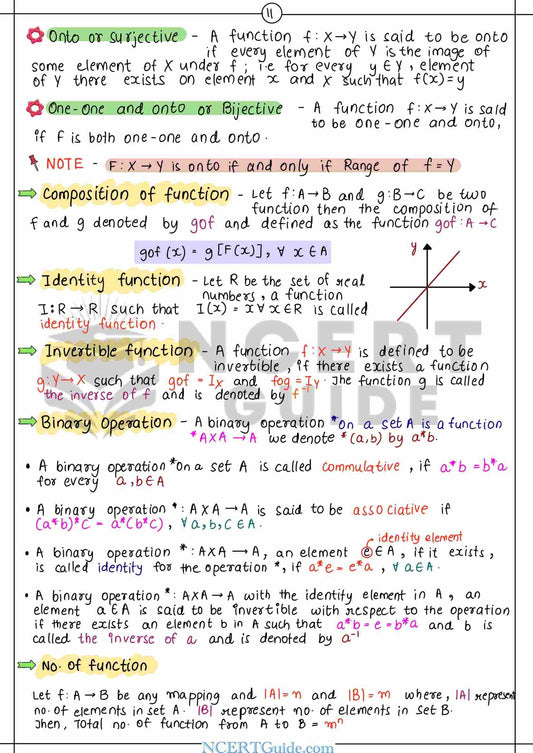 11
Onto or surjective - A function f: X→Y is said to be onto
if every element of Y is the image of
some element of X under f ; i.e for every y ∈ Y, element
of Y there exists on element x and X such that f(x)=y
One-One and onto or Bijective - A function f: X→Y is said
to be one-one and onto,
if F is both one-one and onto.
NOTE - F: X→Y is onto if and only if Range of f = Y
Composition of function - Let f: A→B and g: B→C be two
function then the composition of
f and g denoted by gof and defined as the function gof: A→C
gof (x) = g [F(x)], ∀ x ∈ A
y
x
Identity function - Let R be the set of real
numbers, a function
I: R→R such that I(x) = x ∀ x ∈ R is called
identity function.
Invertible function - A function f: X→Y is defined to be
invertible, if there exists a function
g: Y→X such that gof = Ix and fog = Iy. The function g is called
the inverse of f and is denoted by f⁻¹
Binary Operation - A binary operation *on a set A is a function
*AXA→A we denote *(a,b) by a*b.
• A binary operation *on a set A is called commulative, if a*b = b*a
for every a,b∈A
• A binary operation *: AXA→A is said to be associative if
(a*b)*C = a*(b*C), ∀ a,b,C ∈ A.
identity element
• A binary operation *: AXA→A, an element e ∈ A, if it exists,
is called identity for the operation *, if a*e = e*a, ∀ a∈A.
• A binary operation *: AXA→A with the identity element in A, an
element a ∈ A is said to be invertible with respect to the operation
if there exists an element b in A such that a*b = e = b*a and b is
called the inverse of a and is denoted by a⁻¹
No. of function
Let f: A→B be any mapping and |A|=n and |B|=m where, |A| represent
no. of elements in set A. |B| represent no. of elements in set B.
Then, Total no. of function from A to B = mⁿ
NCERT
GUIDE
NCERTGuide.com